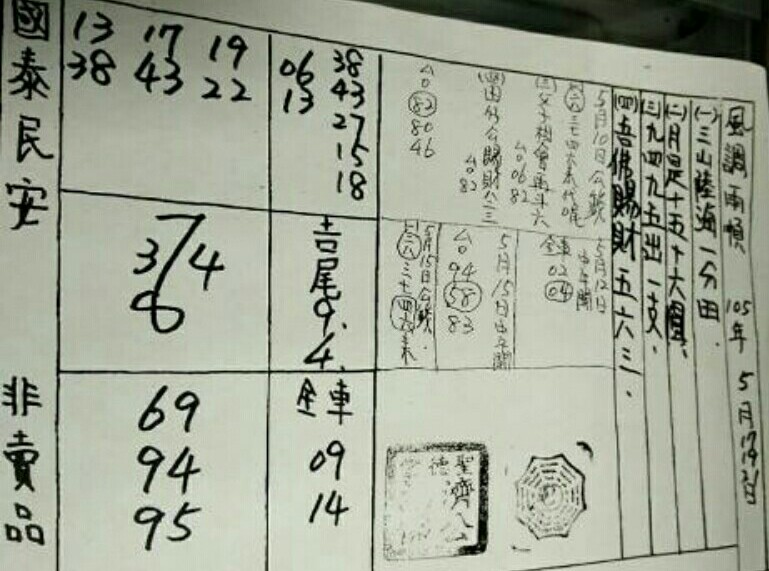 風調雨順 105年 5月17.19.21日
(一)三山陸海一分田.
(二)月是十五十六圓、
(三)九四九五出一支、
(四)吾佛賜財五六三.
5月10日公號
三七四六來代尾
(三)父子相會再斗六
06 82
賜財八三
82
82
80
46
5月12日
全車
02
04
5月15日
94
58
83
5月15日公號
38
43
27
15
18
06
13
吉尾
9.
4.
全車
09
14
13 17 19
38 43 22
7
3 4
8
69
94
95
國泰民安
非賣品
聖德
濟公